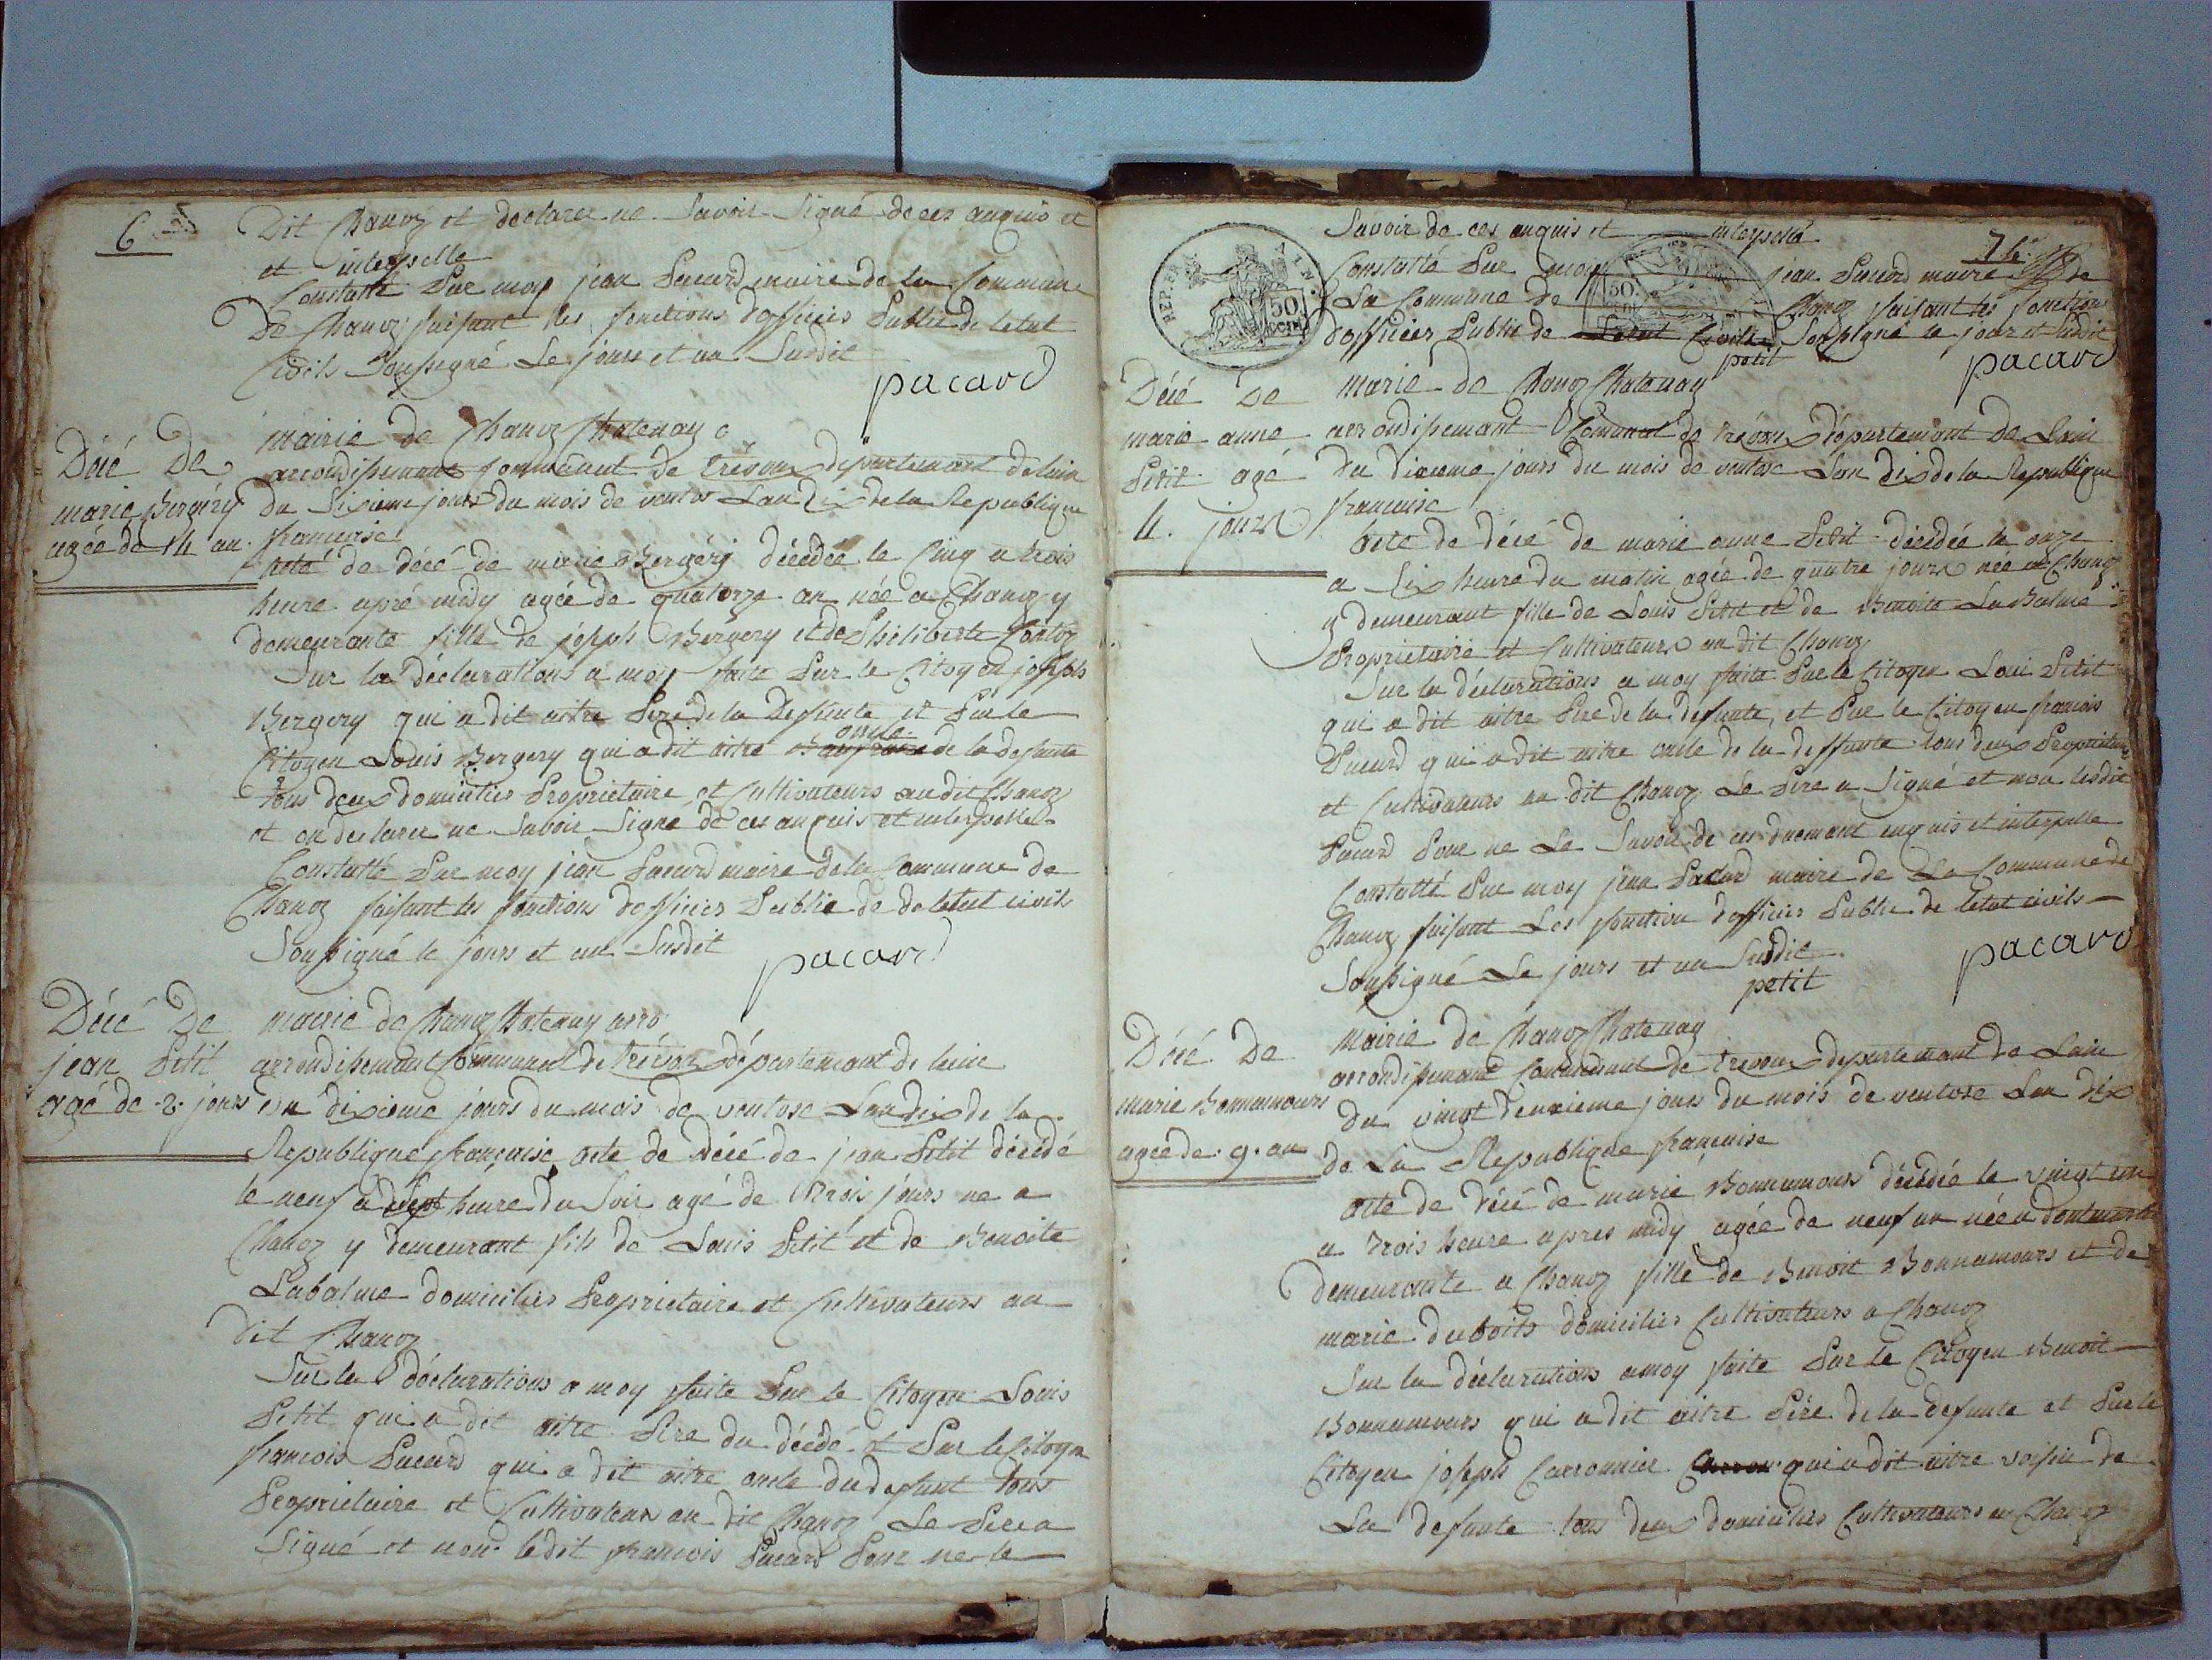 6
Dit Chanoz et declaree ne Savoir Signé de ces anquis et
et interpellé
Constatté Par moy jean Pacard maire de la Commune
De Chanoz faisant les fonctions dofficier Public de letat
Civils Soussigné Le jours et an Susdit
pacard
Décé De
marie Bergéry
agée de 14 an
mairie de Chanoz Chatenay
arrondissement communal de trévoux département de lain
du Sixieme jours du mois de ventos Lan dix de la Republique
francaise
acte de décé de marie Bergéry décédée le Cinq a trois
heure apré midy agée de quatorze an née a Chanoz y
demeurante fille de joseph Bergery et de Philiberte
Sur la déclarations a moy faite Par le Citoyen joseph
Bergery qui a dit aitre Pere de la Deffunte et Par le
Citoyen Louis Bergery qui a dit aitre oncle de la defunte
tous deux domicilies Proprietaire et Cultivateurs au dit Chanoz
et on declaree ne Savoir Signe de ces anquis et interpellé
Constatté Par moy jean Pacard maire de la Commune de
Chanoz faisant les fonctions dofficier Public de de letat civils
Soussigné le jours et an Susdit
pacard
Décé De
jean Petit
agé de .2. jours
mairie de Chanoz Chatenay arro
arrondissemant Communal de trévoux département de lain
du dixieme jours du mois de ventose Lan dix de la
Republique francaise acte de décé de jean Petit décédé
le neuf a sept heure du Soir agé de trois jours ne a
Chanoz y demeurant fils de Louis Petit et de Benoite
Labalme domicilies Proprietaire et Cultivateurs au
dit Chanoz
Sur la déclarations a moy faite Par le Citoyen Louis
Petit qui a dit aitre Pere du décédé et Par le Citoyen
francois Pacard qui a dit aitre oncle du defunt tous
Proprietaire et Cultivateur au dit Chanoz Le Pere a
Signé et non ledit francois Pacard Pour ne le
REP. FRA.
AIN.
50
CEN.
7
Savoir de ces anquis et interpellé
Constatté Par moy jean Pacard maire de
La Commune de Chanoz faisant les fonctions
dofficier Public de Letat Civils Soussigné le jour et susdit
petit
pacard
Décé De
marie anne
Petit agé
4. jours
Marie de Chanoz Chatenay
arrondissemant Comunal de trévoux département de Lain
du dixieme jours du mois de ventose Lan dix de la Republique
francaise
acte de décé de marie anne Petit décédée le onze
a Six heure du matin agée de quatre jours née a Chanoz
y demeurant fille de Louis Petit et de Benoite La Balme
Proprietaire et Cultivateurs au dit Chanoz
Sur la déclarations a moy faite Par le Citoyen Loui Petit
qui a dit aitre Pere de la defunte, et Par le Citoyen francois
Pacard qui a dit aitre oncle de la deffunte tous deux Proprietaire
et Cultivateurs au dit Chanoz Le Pere a Signé et non ledit
Pacard Pour ne Le Savoir de ces duemant enquis et interpelle
Constatté Par moy jean Pacard maire de La Commune de
Chanoz faisant Les fonction dofficier Public de letat civils
Soussigné Le jours et an Susdit
petit
pacard
Décé De
marie Bonnamours
agée de .9. an
Mairie de Chanoz Chatenay
arrondissemant Communal de trévoux departemant de Lain
du vingt deuxieme jours du mois de ventose Lan dix
de La Republique francaise
acte de décé de marie Bonnamour décédée le vingt un
a trois heure apres midy agée de neuf an née a
demeurante a Chanoz fille de Benoit Bonnamours et de
marie duboits domicilies Cultivateurs a Chanoz
Sur la déclarations amoy faite Par le Citoyen Benoit
Bonnamours qui a dit aitre Pére de la defunte et Par le
Citoyen joseph Carronnier qui a dit aitre voisin de
La defunte tous deux domicilies Cultivateurs a Chanoz